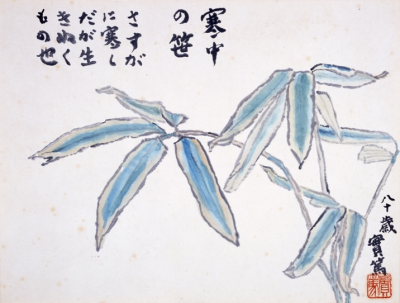 寒中
の笹
さすが
に寒し
だが生
きぬく
もの也
八十歳
實篤